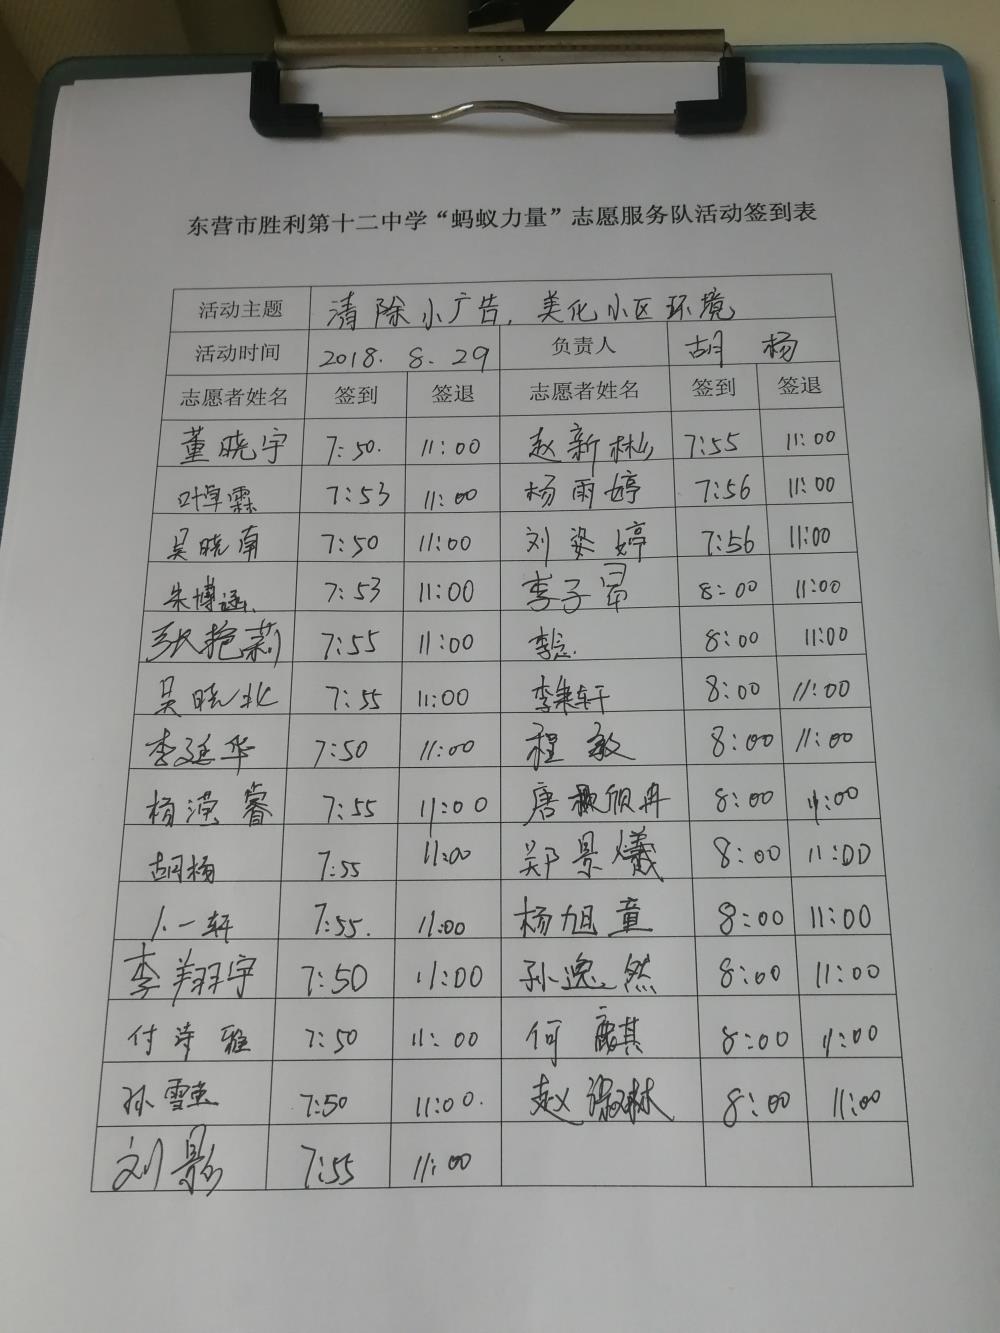 东营市胜利第十二中学“蚂蚁力量”志愿服务队活动签到表
活动主题 清除小广告，美化小区环境
活动时间 2018.8.29 负责人 胡杨
志愿者姓名 签到 签退 志愿者姓名 签到 签退
董晓宇 7:50. 11:00 赵新彬 7:55 11:00
叶卓霖 7:53 11:00 杨雨婷 7:56 11:00
吴晓南 7:50 11:00 刘姿婷 7:56 11:00
朱博涵 7:53 11:00 李子昂 8:00 11:00
张艳莉 7:55 11:00 李 8:00 11:00
吴晓北 7:55 11:00 李秉轩 8:00 11:00
李延华 7:50 11:00 程敏 8:00 11:00
杨滢睿 7:55 11:00 唐欣冉 8:00 11:00
胡杨 7:55 11:00 郑景曦 8:00 11:00
一轩 7:55. 11:00 杨旭童 8:00 11:00
李翔宇 7:50 11:00 孙逸然 8:00 11:00
付诗雅 7:50 11:00 何麒 8:00 11:00
孙雪 7:50 11:00. 赵淑林 8:00 11:00
刘影 7:55 11:00